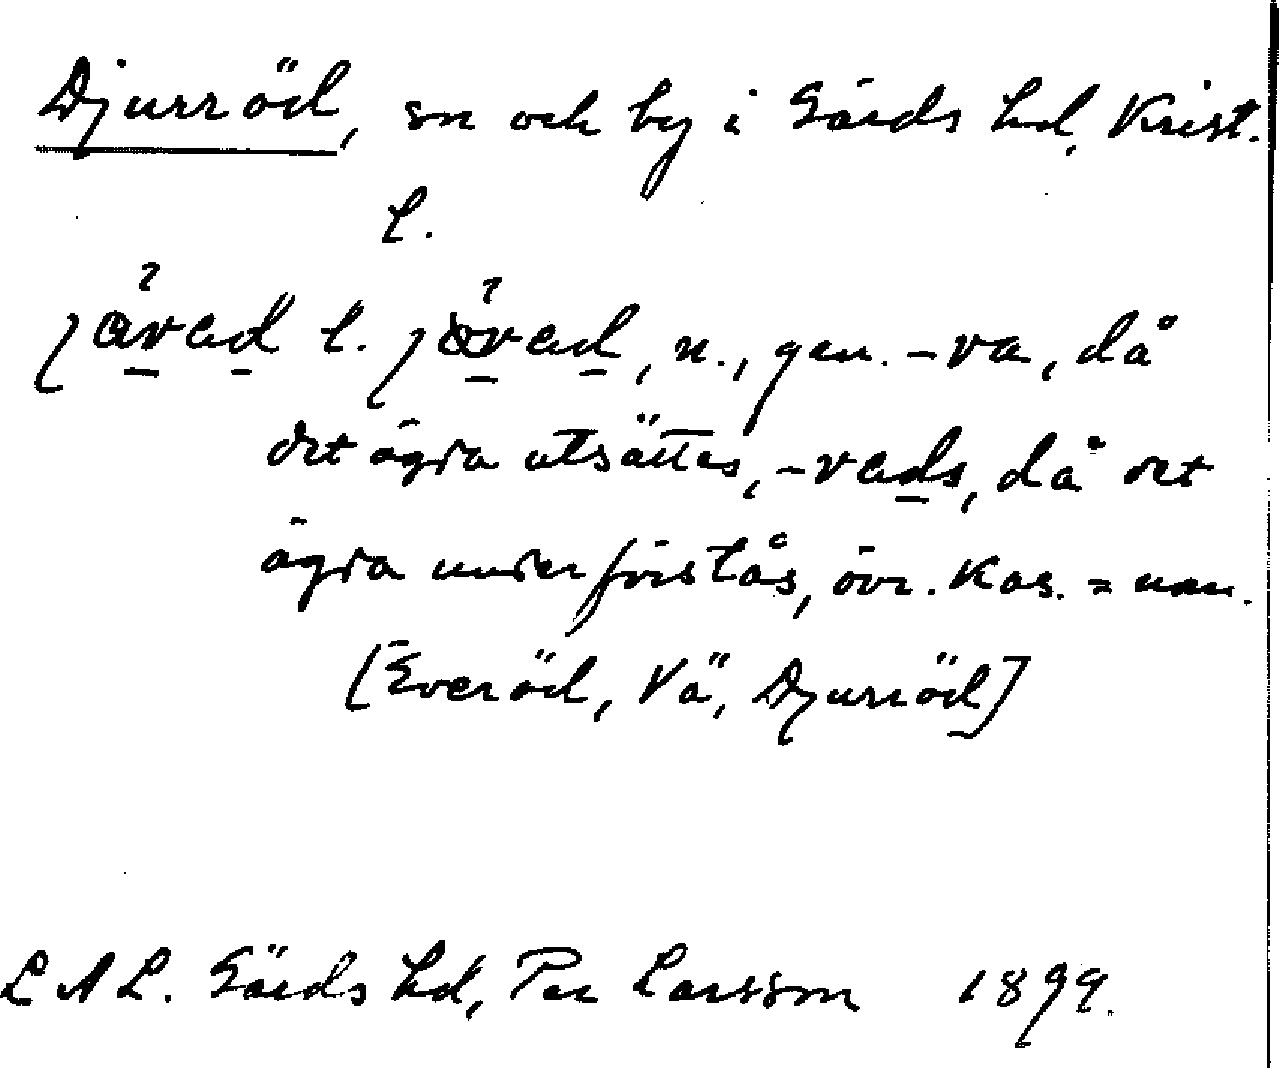 Djurröd, sn och by i Gärds hd, Krist.
l.
javad l. jövad, n., gen. -va, då
det ägda utsättes, -vads, då det
ägda underförstås, övr. kas. = nom.
[Everöd, Vä, Djurröd]
LAL. Gärds hd, Per Larsson 1899.